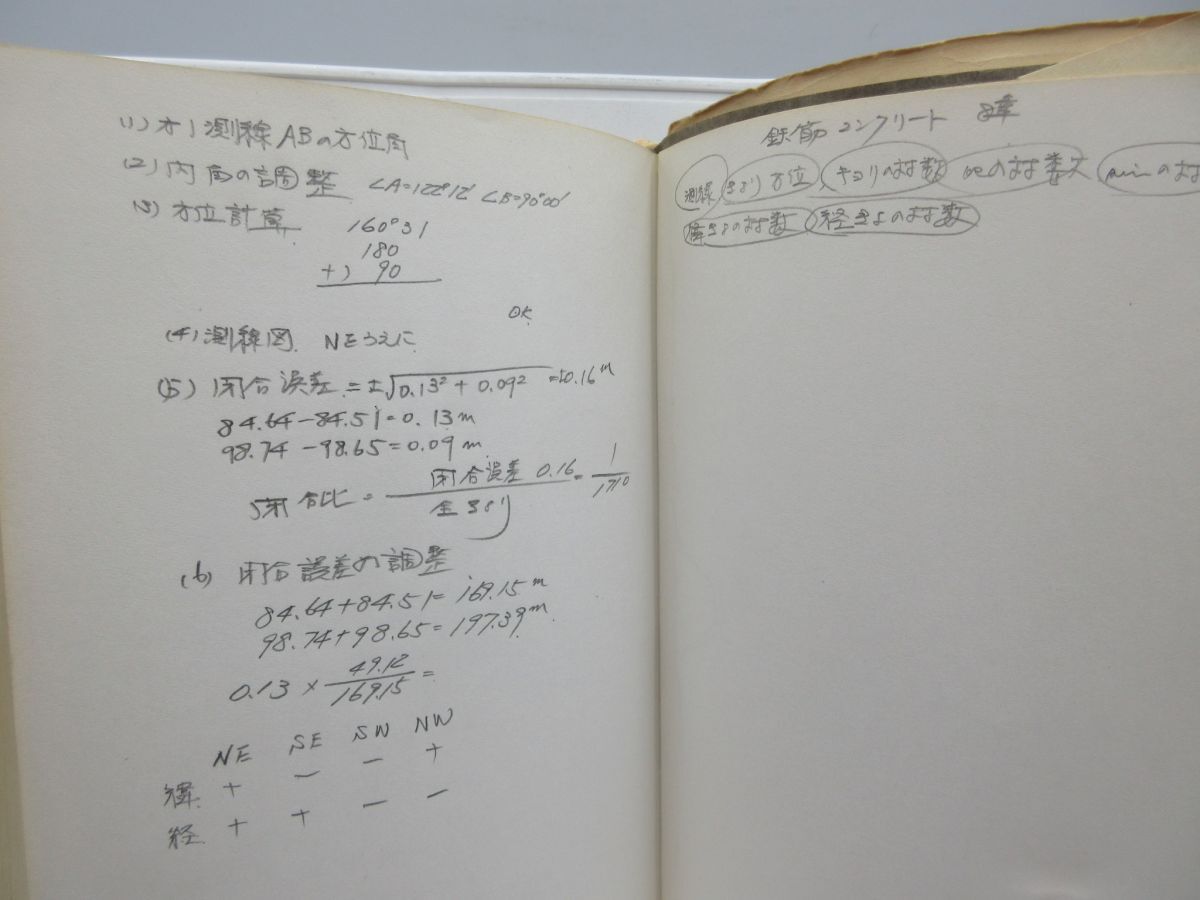 (1) オ1測線ABの方位角
(2) 内角の調整 ∠A=122°12′ ∠B=90°00′
(3) 方位計算
160°31
180
+) 90
OK
(4) 測線図 NEうえに
(5) 閉合誤差=±√0.13²+0.09² =±0.16m
84.64-84.51=0.13m
98.74-98.65=0.09m
閉合比= 閉合誤差 0.16/全きょり = 1/1710
(6) 閉合誤差の調整
84.64+84.51=169.15m
98.74+98.65=197.39m
0.13 × 49.12/169.15 =
NE SE SW NW
緯 + - - +
経 + + - -
鉄筋コンクリート 8章
測線 きょり 方位 キョリの対数 の対数 sinの対
緯きょの対数 経きょの対数